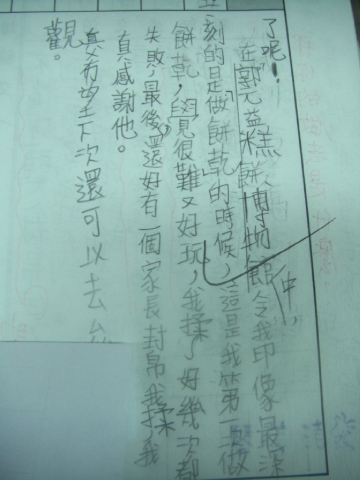 了呢!
在郭元益糕餅博物館中，令我印像最深
刻的是做餅乾的時候，這是我第一次做
餅乾，覺很難又好玩，我揉了好幾次都
失敗，最後還好有一個家長幫我揉，我
真感謝他。
真希望下次還可以去
觀。